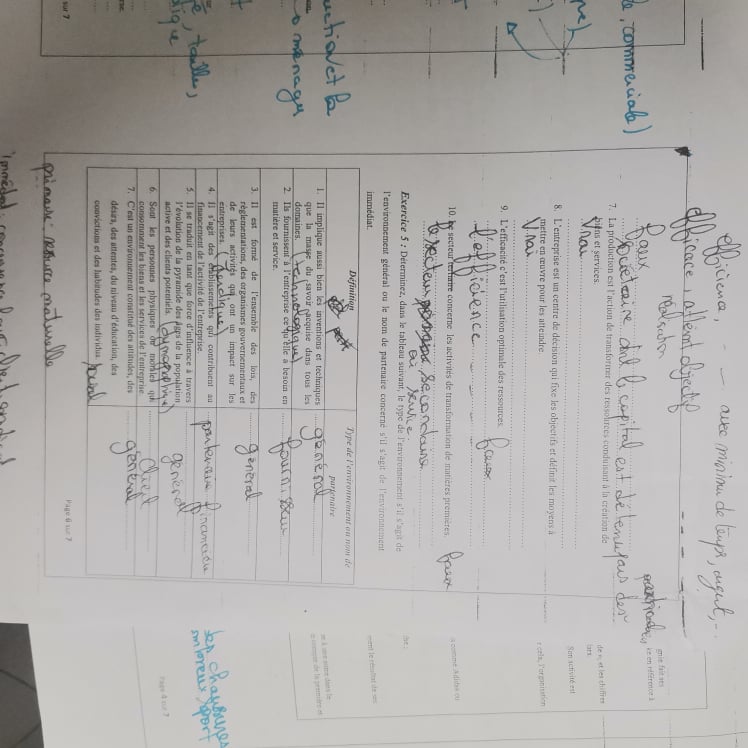 efficience, - - avec minimum de temps, argent, ..
efficace, atteint objectif
réalisation
Faux
Sociétaire dont le capital est détenu par des particuliers
7. La production est l'action de transformer des ressources conduisant à la création de
biens et services.
Vrai
8. L'entreprise est un centre de décision qui fixe les objectifs et définit les moyens à
mettre en œuvre pour les atteindre.
Vrai
9. L'efficacité c'est l'utilisation optimale des ressources. faux
l'efficience
10. Le secteur tertiaire concerne les activités de transformation de matières premières. faux
le secteur secondaire
ou service.
Exercice 5 : Déterminez, dans le tableau suivant, le type de l'environnement s'il s'agit de
l'environnement général ou le nom de partenaire concerné s'il s'agit de l'environnement
immédiat.
Définition
Type de l'environnement ou nom de
partenaire
1. Il implique aussi bien les inventions et techniques
que la masse du savoir acquise dans tous les
domaines. (technologique)
général
2. Ils fournissent à l'entreprise ce qu'elle a besoin en
matière et service.
3. Il est formé de l'ensemble des lois, des
règlementations, des organismes gouvernementaux et
de leurs activités qui ont un impact sur les
entreprises.
general
4. Il s'agit des établissements qui contribuent au
financement de l'activité de l'entreprise.
partenaire financier
5. Il se traduit en tant que force d'influence à travers
l'évolution de la pyramide des âges de la population
active et des clients potentiels.
général
6. Sont les personnes physiques ou morales qui
consomment les biens et les services de l'entreprise.
Client
7. C'est un environnement constitué des attitudes, des
désirs, des attentes, du niveau d'éducation, des
convictions et des habitudes des individus. social
général
Page 6 sur 7
primaire: resource naturelle
commerciale)
uction et la
ménage
taille,
sur 7
gnie fait ses
ce en référence à
de n, et les chiffres
Son activité est
r cela, l'organisation
comme Adidas ou
ment le résultat de ses
chaussures
sport
Page 4 sur 7